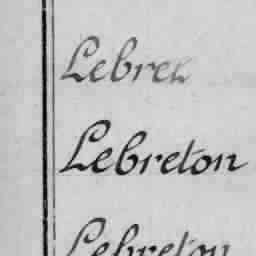 Lebrec
Lebreton
Lebreton